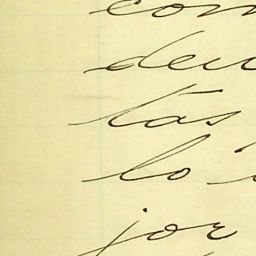 con
den
tas
lo
jor